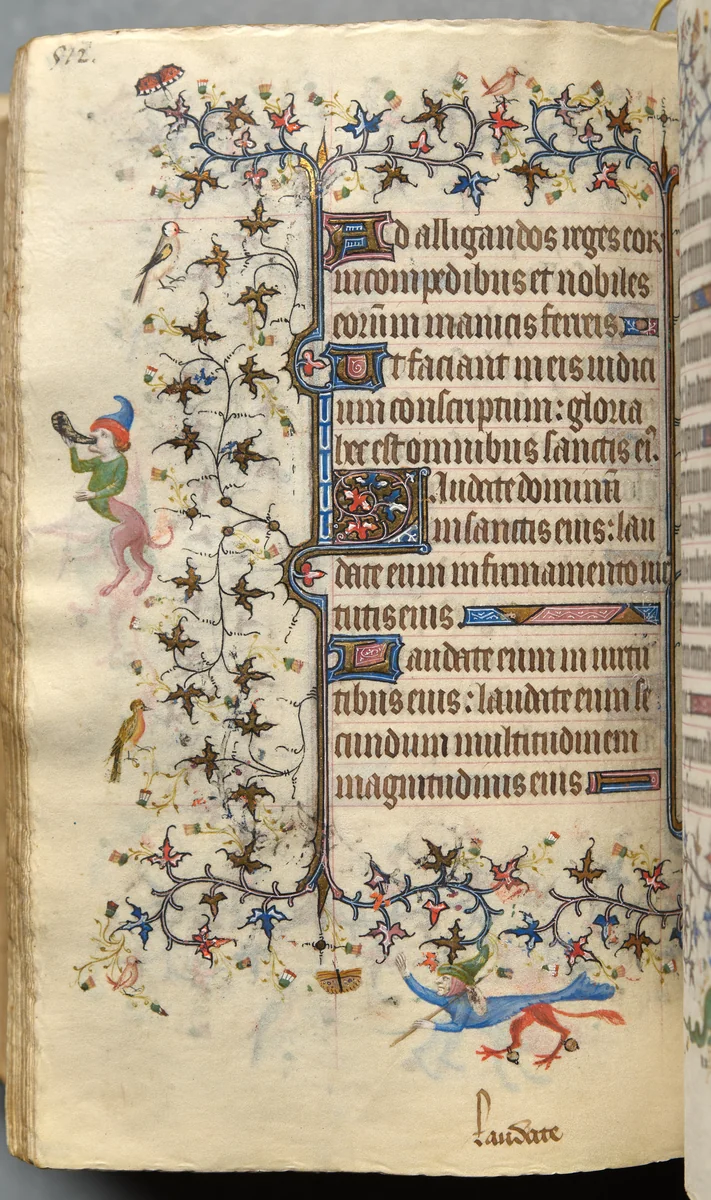 512.
Ad alligandos reges eor
in compedibus et nobiles
eorū in manicis ferreis.
Ut faciant in eis iudici
um conscriptum: gloria
hec est omnibus sanctis eiꝰ.
Laudate dominū
in sanctis eius: lau
date eum in firmamento uir
tutis eius.
Laudate eum in uirtu
tibus eius: laudate eum se
cundum multitudinem
magnitudinis eius
Laudate